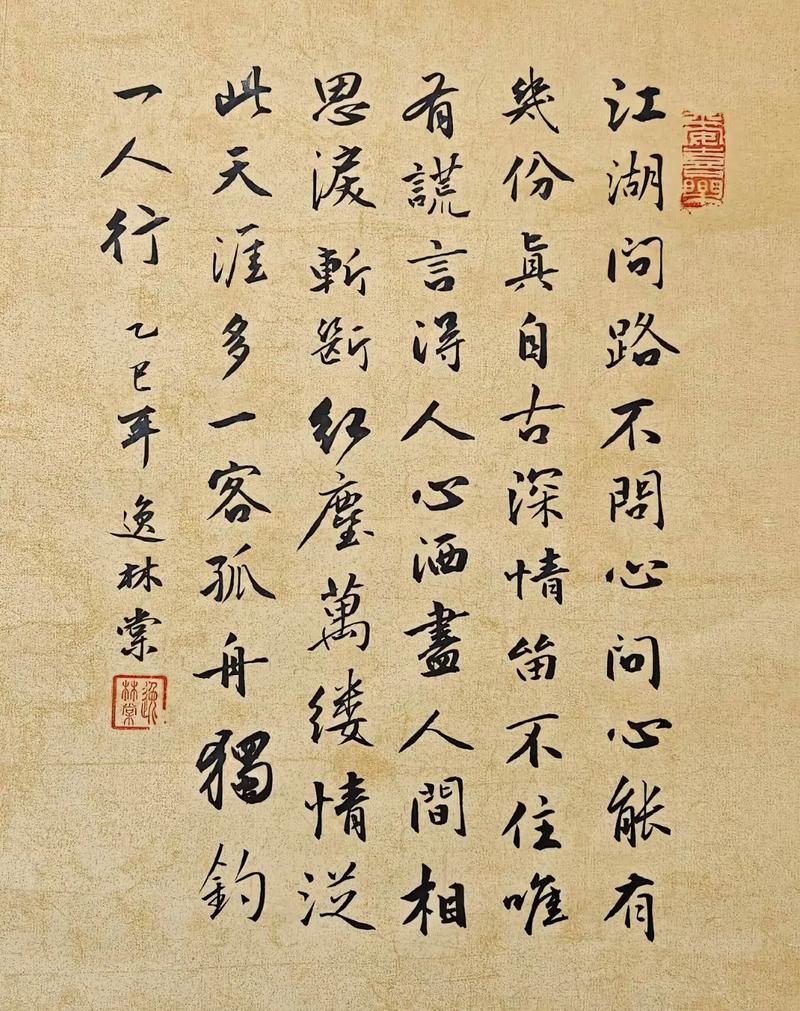 江湖问路不問心问心能有
幾份真自古深情留不住唯
有謊言得人心洒盡人間相
思淚斬斷红塵萬缕情從
此天涯多一客孤舟獨釣
一人行
乙巳年 逸林棠
逸林棠